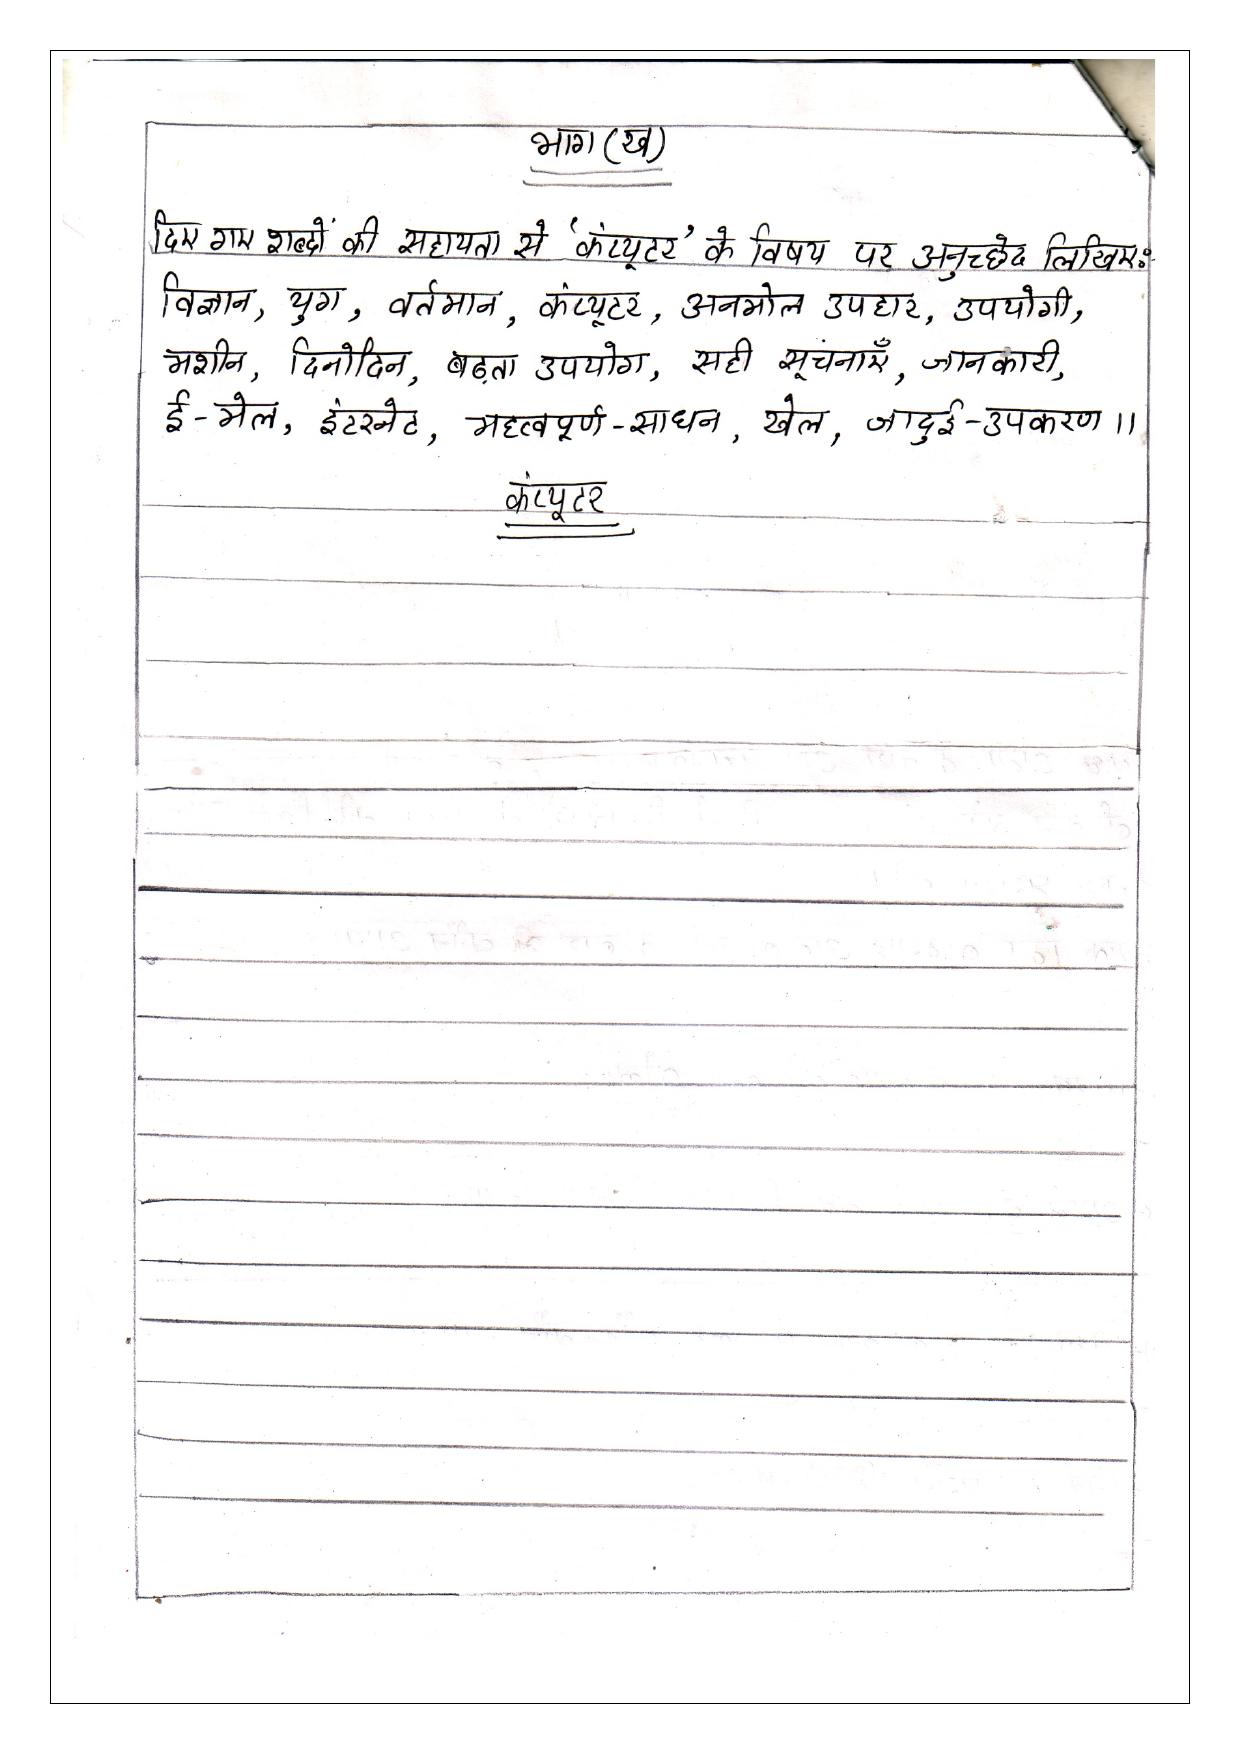 भाग (ख)
दिए गए शब्दों की सहायता से 'कंप्यूटर' के विषय पर अनुच्छेद लिखिए:
विज्ञान, युग, वर्तमान, कंप्यूटर, अनमोल उपहार, उपयोगी,
मशीन, दिनोदिन, बढ़ता उपयोग, सही सूचनाएँ, जानकारी,
ई-मेल, इंटरनेट, महत्वपूर्ण-साधन, खेल, जादुई-उपकरण ।।
कंप्यूटर